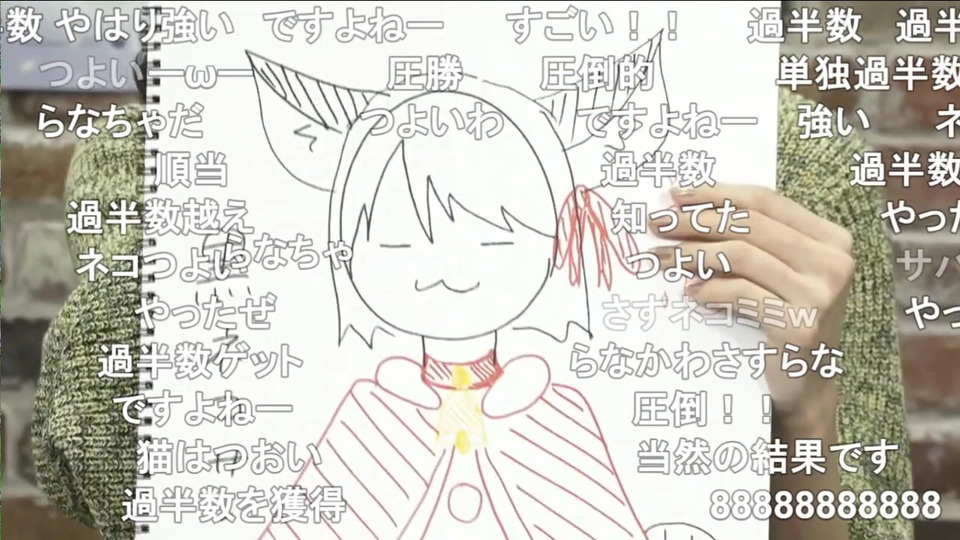 数 やはり強い ですよねー すごい！！ 過半数 過半
つよいーωー 圧勝 圧倒的 単独過半数
らなちゃだ つよいわ ですよねー 強い ネ
順当 過半数 過半数
過半数越え 知ってた やった
らなちゃ
ネコつよい つよい サバ
やったぜ さすネコミミw やっ
過半数ゲット らなかわさすらな
ですよねー 圧倒！！
猫はつおい 当然の結果です
過半数を獲得 88888888888